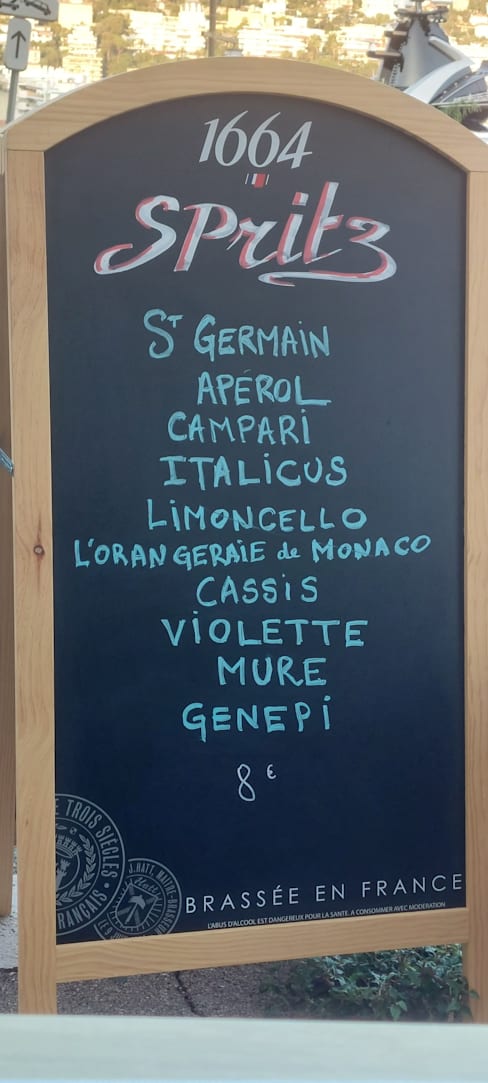 1664
SPritz
ST GERMAIN
APÉROL
CAMPARI
ITALICUS
LIMONCELLO
L'ORANGERAIE de MONACO
CASSIS
VIOLETTE
MURE
GENEPI
8 €
TROIS SIÈCLES
FRANÇAIS
J. HATT, MAITRE-BRASSEUR
Hatt
BRASSÉE EN FRANCE
L'ABUS D'ALCOOL EST DANGEREUX POUR LA SANTE. A CONSOMMER AVEC MODERATION